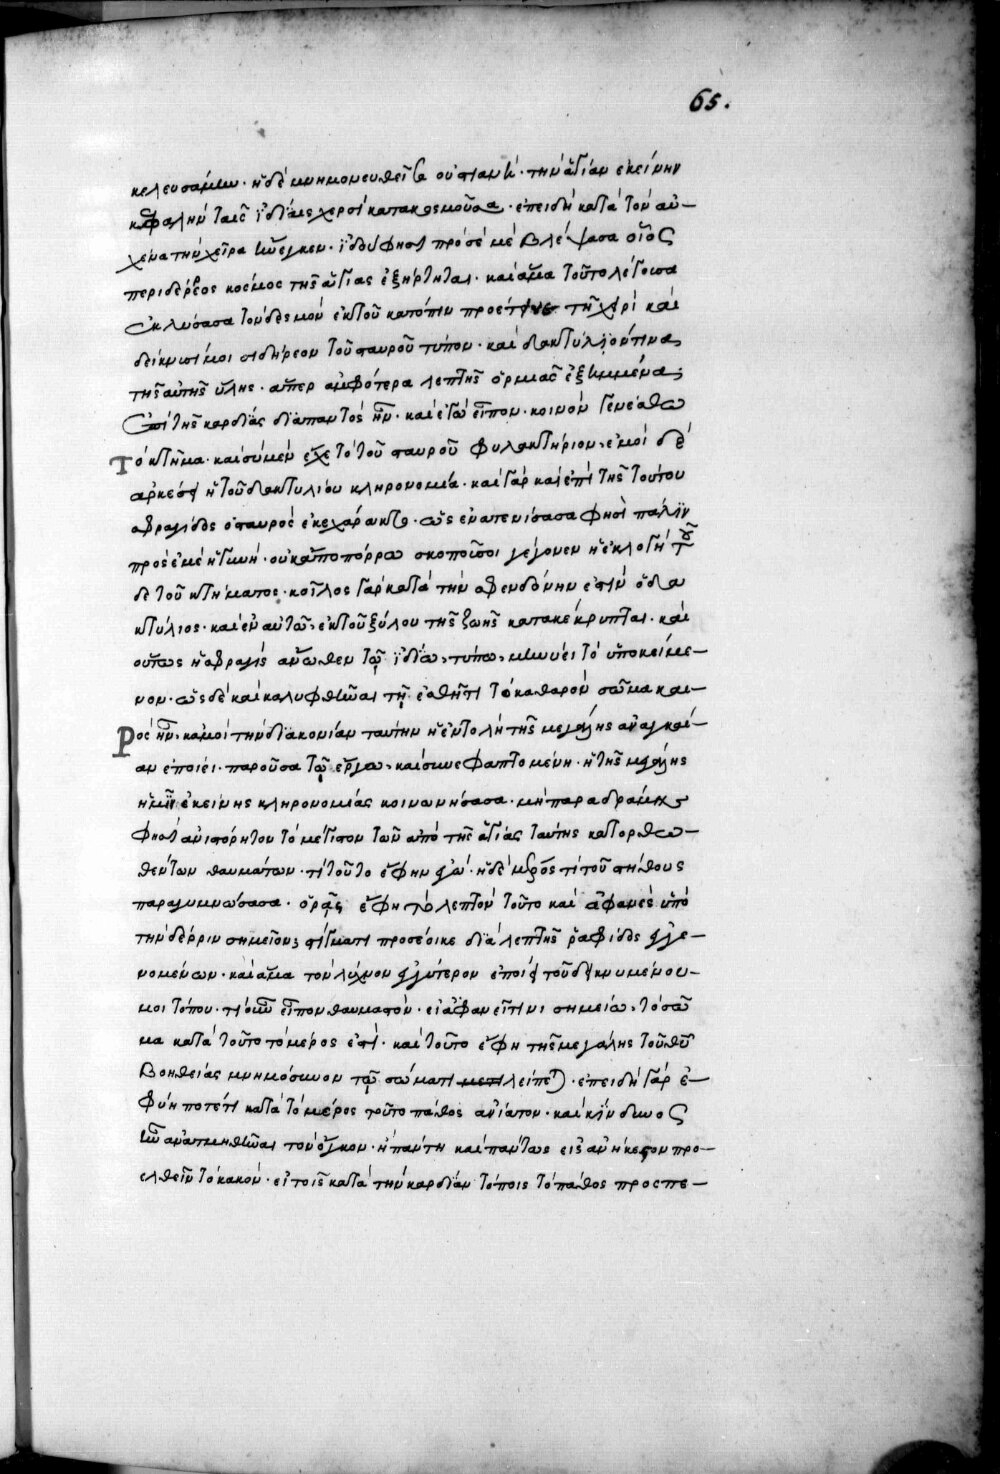 65.
κελευσάμην. ἡ δὲ μνημονευθεῖσα οὐϊστιανὴ. τὴν ἁγίαν ἐκείνην
κεφαλὴν ταῖς ἰδίαις χερσὶ κατακοσμοῦσα. ἐπειδὴ κατὰ τὸν αὐ-
χένα τὴν χεῖρα ἤνεγκεν. ἰδοὺ φησὶ πρός με βλέψασα οἷος
περιδέρρεος κόσμος τῆς ἁγίας ἐξήρτηται. καὶ ἅμα τοῦτο λέγουσα
ἐκλύσασα τὸν δεσμὸν ἐκ τοῦ κατόπιν προέτεινε τῇ χειρὶ καὶ
δείκνυσί μοι σιδήρεον τοῦ σταυροῦ τύπον. καὶ δακτύλιόν τινα
τῆς αὐτῆς ὕλης. ἅπερ ἀμφότερα λεπτῆς ὁρμιᾶς ἐξημμένα,
ἐπὶ τῆς καρδίας διαπαντὸς ἦν. καὶ ἐγὼ εἶπον. κοινὸν γενέσθω
τὸ κτῆμα. καὶ σὺ μὲν ἔχε τὸ τοῦ σταυροῦ φυλακτήριον, ἐμοὶ δὲ
ἀρκέσει ἡ τοῦ δακτυλίου κληρονομία. καὶ γὰρ καὶ ἐπὶ τῆς τούτου
σφραγίδος ὁ σταυρὸς ἐκεχάρακτο. ὡς ἐνατενίσασα φησὶ πάλιν
πρὸς ἐμὲ ἡ γυνή. οὐκ ἄπο πόρρω σκοποῦ σοι γέγονεν ἡ ἐκλογὴ τοῦ
δε τοῦ κτήματος. κοῖλος γὰρ κατὰ τὴν σφενδόνην ἐστὶν ὁ δα
κτύλιος. καὶ ἐν αὐτῷ, ἐκ τοῦ ξύλου τῆς ζωῆς κατακέκρυπται. καὶ
οὕτως ἡ σφραγὶς ἄνωθεν τῷ ἰδίω, τύπω, μηνύει τὸ ὑποκείμε-
νον. ὡς δὲ καὶ καλυφθῆναι τῇ ἐσθῆτι τὸ καθαρὸν σῶμα και-
ρὸς ἦν, κἀμοὶ τὴν διακονίαν ταύτην ἡ ἐντολὴ τῆς μεγάλης ἀναγκαί-
αν ἐποίει. παροῦσα τῷ ἔργω, καὶ συνεφαπτομένη. ἡ τῆς μεγάλης
ἡμῖν ἐκείνης κληρονομίας κοινωνήσασα. μὴ παραδράμης
φησὶν ἀνιστόρητον τὸ μέγιστον τῶν ἀπὸ τῆς ἁγίας ταύτης κατορθω-
θέντων θαυμάτων. τί τοῦτο ἔφην ἐγώ. ἡ δὲ μέρος τι τοῦ στήθους
παραγυμνώσασα. ὁρᾷς ἔφη τὸ λεπτὸν τοῦτο καὶ ἀφανὲς ὑπὸ
τὴν δέρριν σημεῖον; στίγματι προσέοικε διὰ λεπτῆς ῥαφίδος ἐγγε-
νομένων. καὶ ἅμα τὸν λύχνον ἐγγύτερον ἐποίει τοῦ δεικνυμένου-
μοι τόπου. τί οὖν εἶπον θαυμαστόν. εἰ ἀφανεῖ τινι σημείω, τὸ σῶ
μα κατὰ τοῦτο τὸ μέρος ἐστί. καὶ τοῦτο ἔφη τῆς μεγάλης τοῦ θεοῦ
βοηθείας μνημόσυνον τῷ σώματι λείπεται. ἐπειδὴ γὰρ ἐ-
φύη ποτέ τι κατὰ τὸ μέρος τοῦτο πάθος ἀνίατον. καὶ κίνδυνος
ἦν ἀνατμηθῆναι τὸν ὄγκον. ἢ πάντη καὶ πάντως εἰς ἀνήκεστον προ-
ελθεῖν τὸ κακὸν. εἰ τοῖς κατὰ τὴν καρδίαν τόποις τὸ πάθος προςπε-